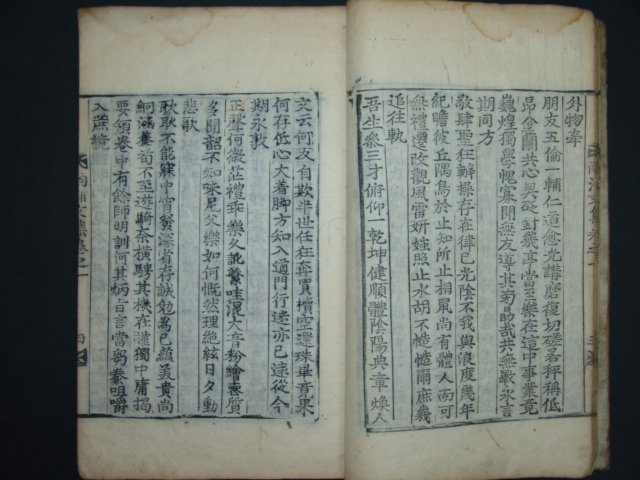 外物牽
朋友五倫一輔仁道愈光講磨復切磋若秤稱低
昂金蘭共心臭砭針幾亭當至樂在這中事業竟
巍煌獨學愧寡聞無友導其哉共無斁永言
期同方
敬肆聖狂辦操存在律己光陰不我與浪度幾年
紀瞻彼丘隅鳥於止知所止相鼠尚有體人而可
無禮遷改觀風雷妍媸照止水胡不慥慥爾庶幾
追往軌
吾生參三才俯仰一乾坤健順體陰陽典章煥人
文云何友自欺半世任狂奔買櫝空還珠畢竟果
何存低心大着脚方知入道門行迷亦已遠從今
期永敦
正聲何微茫禮乖樂久訛繁哇混大音粉繪喪質
多聞韶不知味尼父樂如何慨然理絶絃日夕動
悲歌
耿耿不能寐中宵發深省存誠勉爲己蘊美貴尚
絅涵養苟不至遊騎奈橫騁其機在謹獨中庸揭
要領卷中有餘師明訓何其炳旨言當芻豢咀嚼
入蔗境
文集卷之一
四